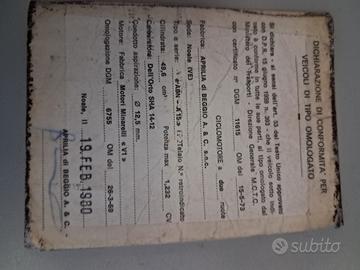 DICHIARAZIONE DI CONFORMITA' PER
VEICOLI DI TIPO OMOLOGATO
Si dichiara - ai sensi dell'art. 53 del Testo Unico approvato
con D.P.R. 15 giugno 1959 n. 393 - che il veicolo sotto indi-
cato è conforme in tutte le sue parti, al tipo omologato dal
Ministero dei Trasporti - Direzione Generale M.C.T.C.
con certificato n° DGM 11615 OM del 15-5-73
CICLOMOTORE a due ruote
Fabbrica: APRILIA di BEGGIO A. & C. s.n.c.
Sede: Noale (VE)
Tipo e serie: Telaio N.° retroindicato
Cilindrata: 49,6 cm³ Potenza max 1,232 CV.
Carburatore: Dell'Orto SHA 14-12
Condotto aspirazione: Ø 12,5 mm.
Motore: Fabbrica Motori Minarelli « V1 »
Omologazione DGM 6755 OM del 26-3-69
Noale, li 19 FEB. 1980
APRILIA di BEGGIO A. & C.
subito